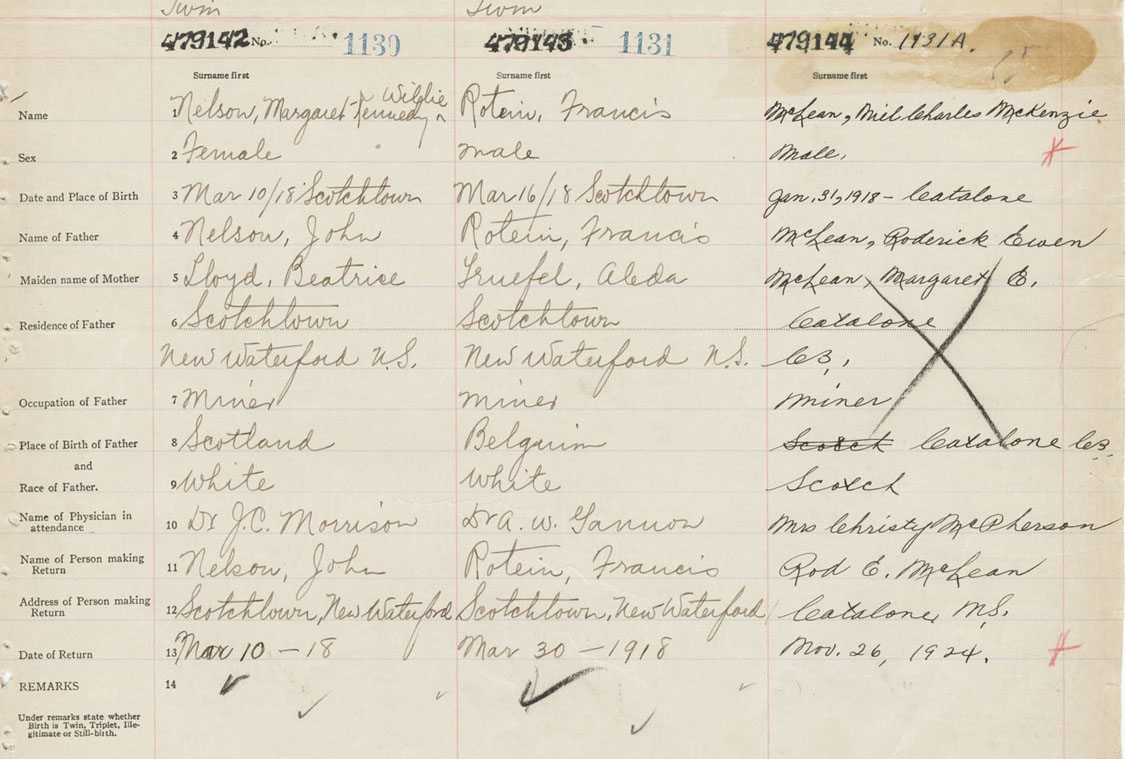 Twin Twin
479142 No. 1130 479143 1131 479144 No. 1131A.
Surname first Surname first Surname first
Name 1 Nelson, Margaret Kennedy Wildie Rotein, Francis McLean, Niel Charles McKenzie
Sex 2 Female male Male.
Date and Place of Birth 3 Mar 10/18 Scotchtown Mar 16/18 Scotchtown Jan. 31, 1918 - Catalone
Name of Father 4 Nelson, John Rotein, Francis McLean, Roderick Ewen
Maiden name of Mother 5 Lloyd, Beatrice Gruefel, Aleda McLean, Margaret E.
Residence of Father 6 Scotchtown Scotchtown Catalone
New Waterford N.S. New Waterford N.S. C.B.,
Occupation of Father 7 Miner miner Miner
Place of Birth of Father 8 Scotland Belguim Scotch Catalone C.B.
and
Race of Father. 9 White White Scotch
Name of Physician in
attendance 10 Dr J.C. Morrison Dr A. W. Gannon Mrs Christy McPherson
Name of Person making
Return 11 Nelson, John Rotein, Francis Rod E. McLean
Address of Person making
Return 12 Scotchtown, New Waterford Scotchtown, New Waterford Catalone, N.S.
Date of Return 13 Mar 10 - 18 Mar 30 - 1918 Nov. 26, 1924.
REMARKS 14
Under remarks state whether
Birth is Twin, Triplet, Ille-
gitimate or Still-birth.